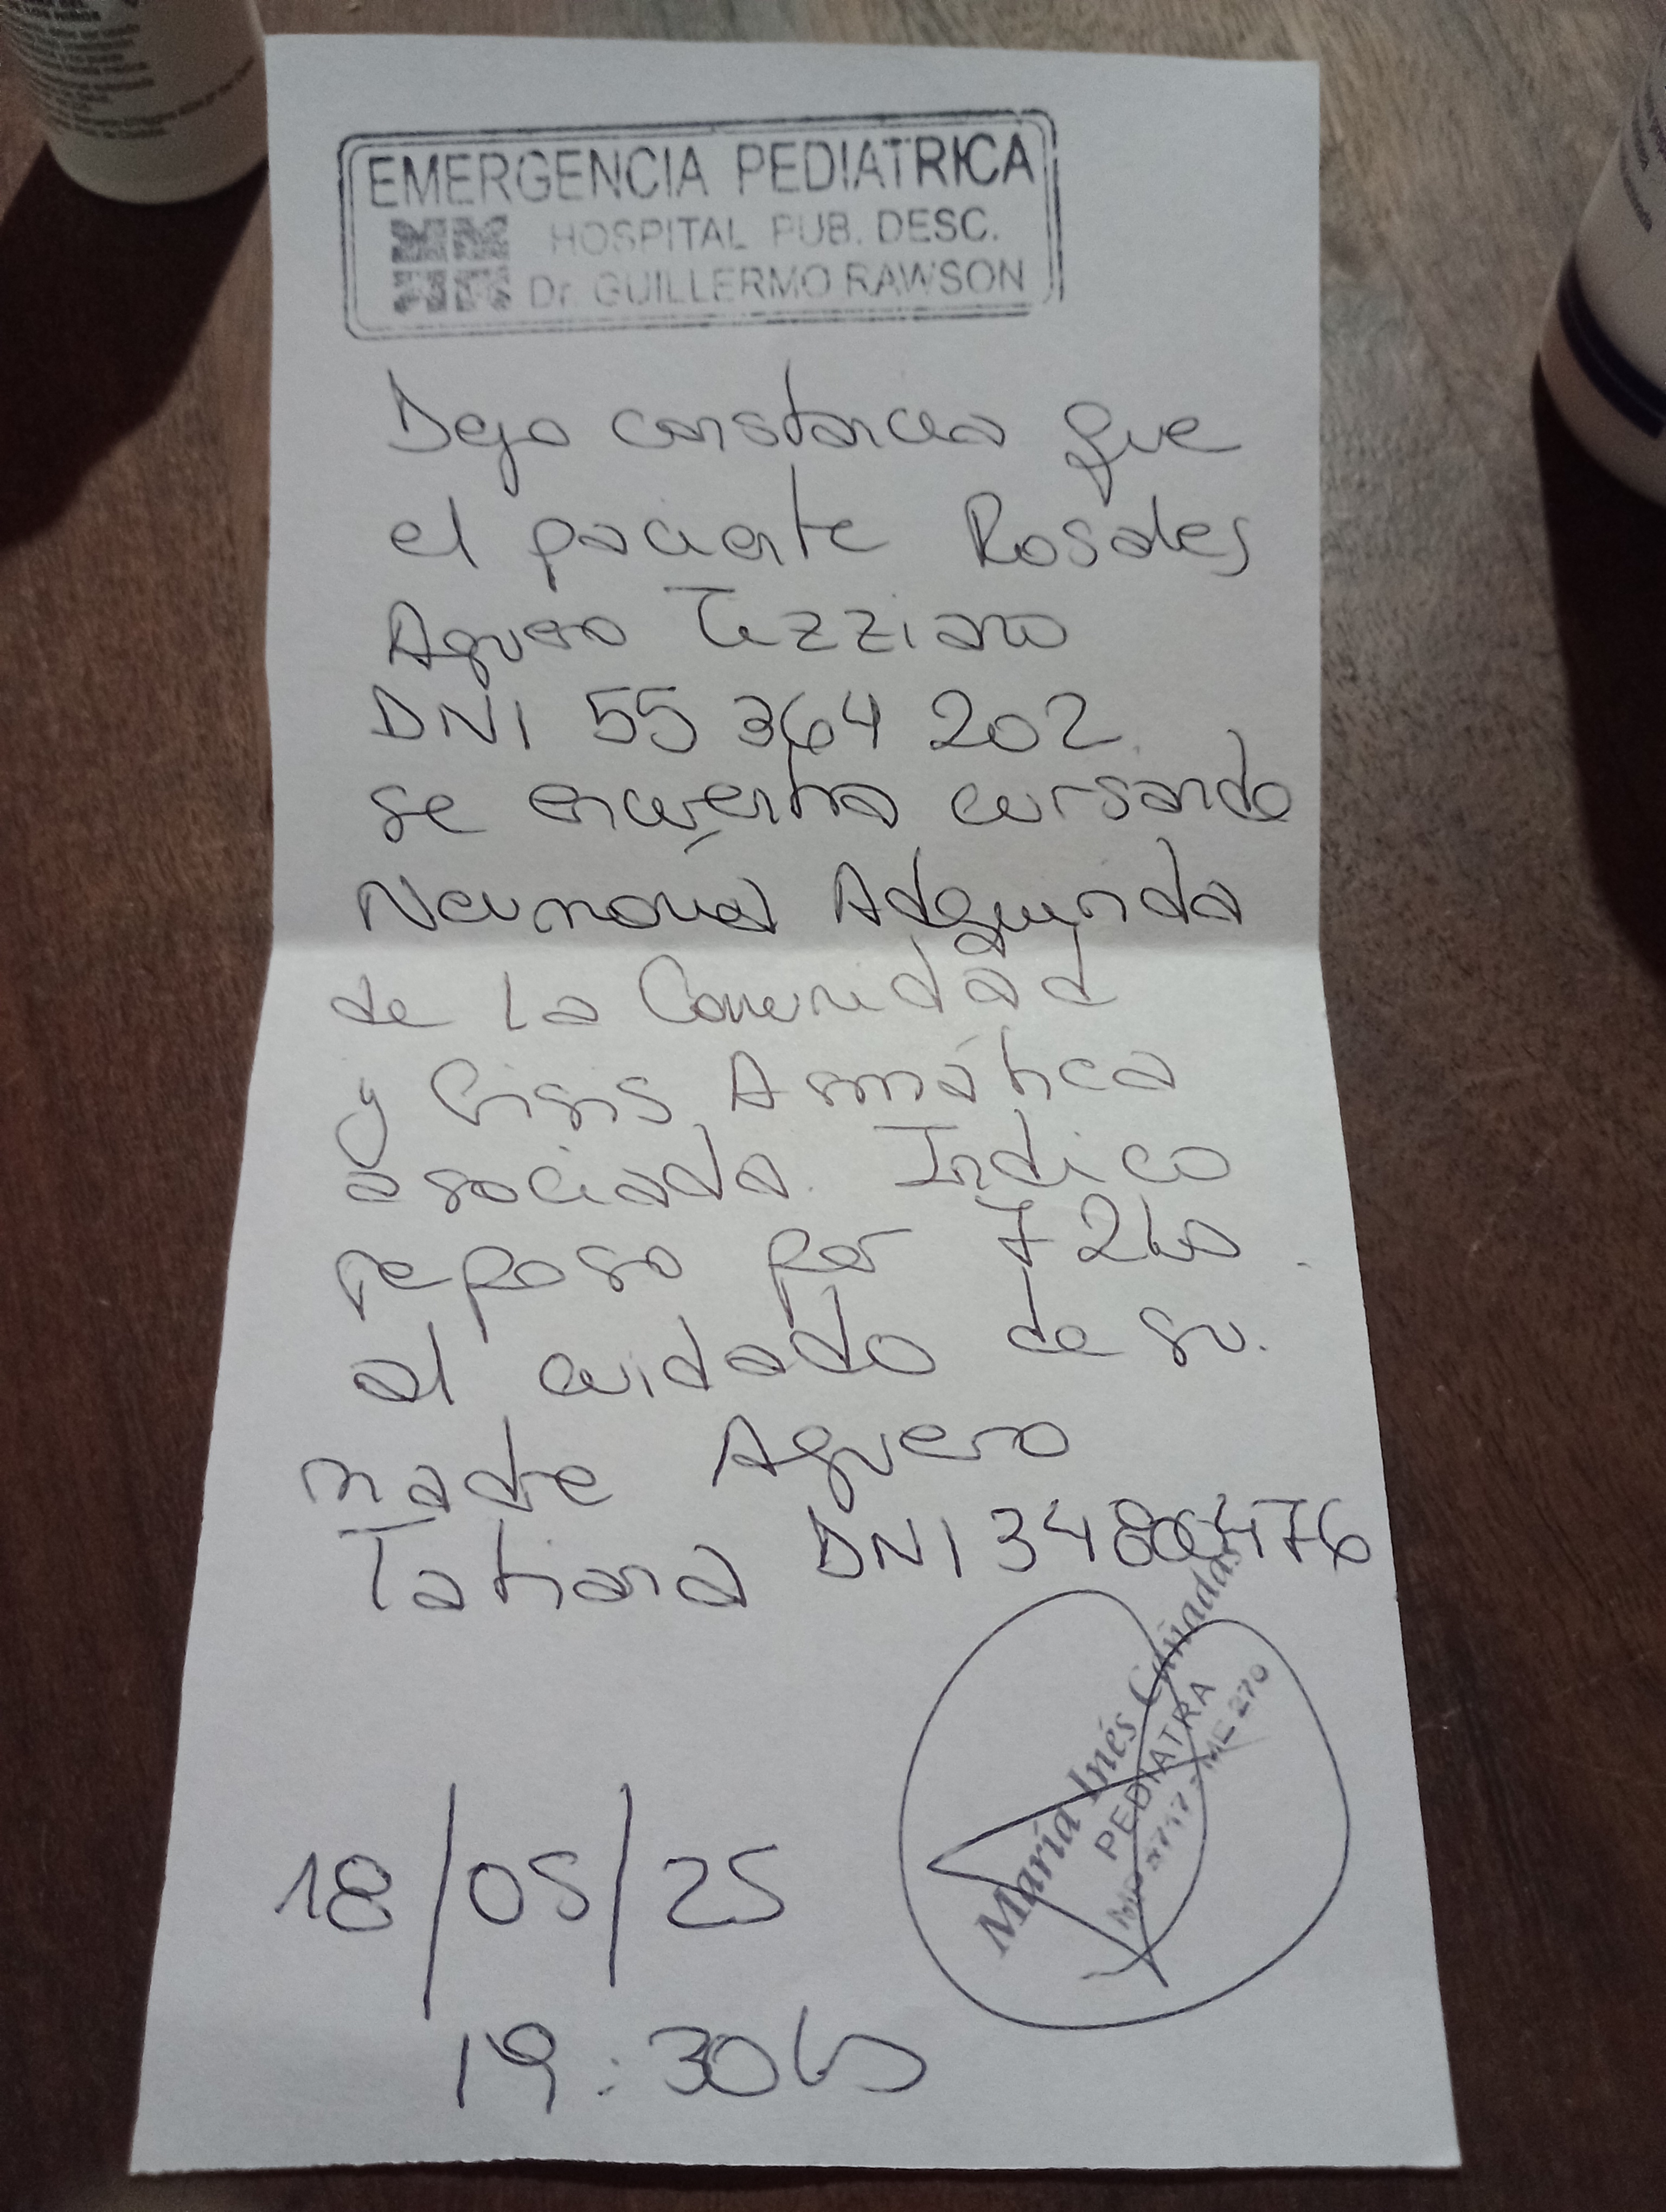 EMERGENCIA PEDIATRICA
HOSPITAL PUB. DESC.
Dr. GUILLERMO RAWSON
Dejo constancia que
el paciente Rosales
Aguero Tizziano
DNI 55 364 202
se encuentra cursando
Neumonía Adquirida
de la Comunidad
y Crisis Asmática
asociada. Indico
reposo por 72hs
al cuidado de su
madre Aguero
Tatiana DNI 34
María Inés Cañadas
PEDIATRA
ME 270
18/05/25
19:30hs